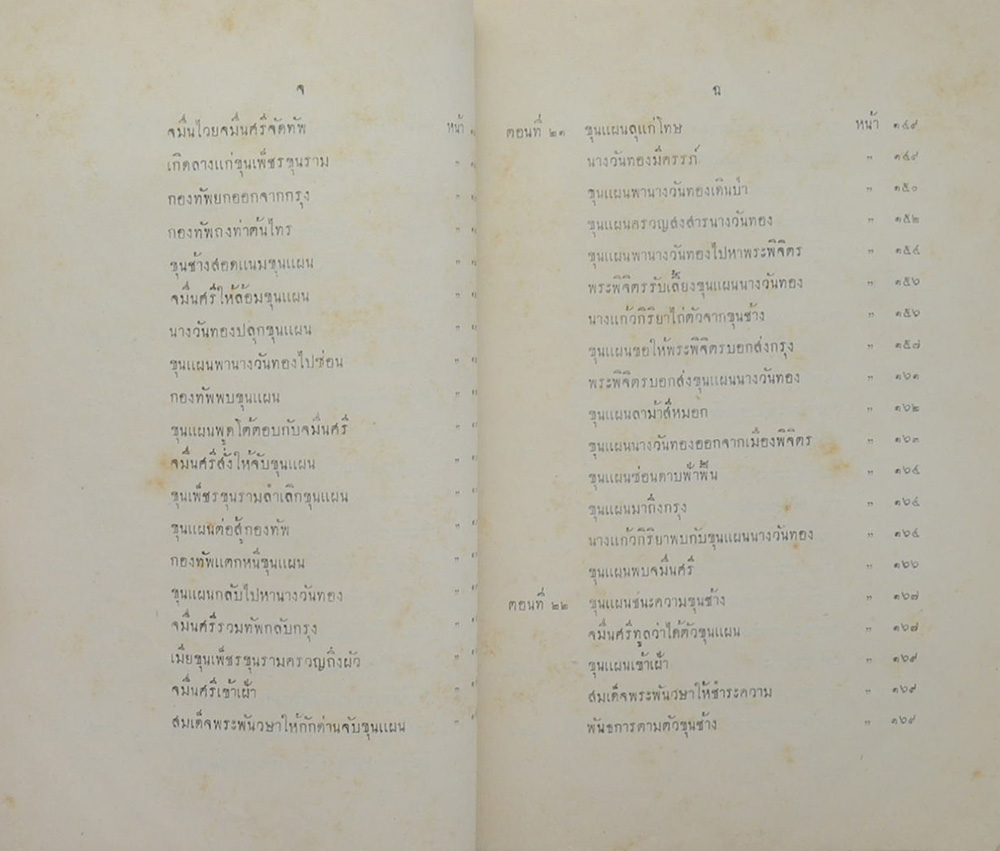 จ
จมื่นไวยจมื่นศรีจัดทัพ หน้า
เกิดลางแก่ขุนเพ็ชรขุนราม "
กองทัพยกออกจากกรุง "
กองทัพถึงท่าต้นไทร "
ขุนช้างสอดแนมขุนแผน "
จมื่นศรีให้ล้อมขุนแผน "
นางวันทองปลุกขุนแผน "
ขุนแผนพานางวันทองไปซ่อน "
กองทัพพบขุนแผน "
ขุนแผนพูดโต้ตอบกับจมื่นศรี "
จมื่นศรีสั่งให้จับขุนแผน "
ขุนเพ็ชรขุนรามลำเลิกขุนแผน "
ขุนแผนต่อสู้กองทัพ "
กองทัพแตกหนีขุนแผน "
ขุนแผนกลับไปหานางวันทอง "
จมื่นศรีรวมทัพกลับกรุง "
เมียขุนเพ็ชรขุนรามครวญถึงผัว "
จมื่นศรีเข้าเฝ้า "
สมเด็จพระพันวษาให้กักด่านจับขุนแผน "
ฉ
ตอนที่ ๒๑ ขุนแผนลุแก่โทษ หน้า ๑๔๙
นางวันทองมีครรภ์ " ๑๔๙
ขุนแผนพานางวันทองเดินป่า " ๑๕๐
ขุนแผนครวญสงสารนางวันทอง " ๑๕๒
ขุนแผนพานางวันทองไปหาพระพิจิตร " ๑๕๔
พระพิจิตรรับเลี้ยงขุนแผนนางวันทอง " ๑๕๖
นางแก้วกิริยาไถ่ตัวจากขุนช้าง " ๑๕๖
ขุนแผนขอให้พระพิจิตรบอกส่งกรุง " ๑๕๗
พระพิจิตรบอกส่งขุนแผนนางวันทอง " ๑๖๑
ขุนแผนลาม้าสีหมอก " ๑๖๒
ขุนแผนนางวันทองออกจากเมืองพิจิตร " ๑๖๓
ขุนแผนซ่อนดาบฟ้าฟื้น " ๑๖๔
ขุนแผนมาถึงกรุง " ๑๖๔
นางแก้วกิริยาพบกับขุนแผนนางวันทอง " ๑๖๔
ขุนแผนพบจมื่นศรี " ๑๖๖
ตอนที่ ๒๒ ขุนแผนชนะความขุนช้าง " ๑๖๗
จมื่นศรีทูลว่าได้ตัวขุนแผน " ๑๖๗
ขุนแผนเข้าเฝ้า " ๑๖๙
สมเด็จพระพันวษาให้ชำระความ " ๑๖๙
พันธการตามตัวขุนช้าง " ๑๖๙